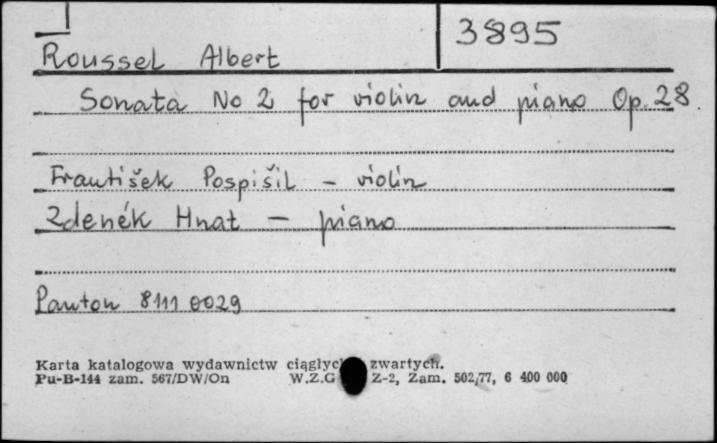 3895
Roussel Albert
Sonata No 2 for violin and piano Op. 28
František Pospišil - violin
Zdenék Hnat - piano
Panton 8111 0029
Karta katalogowa wydawnictw zwartych.
Pu-B-144 zam. 567/DW/On W.Z.G Z-2, Zam. 502/77, 6 400 000